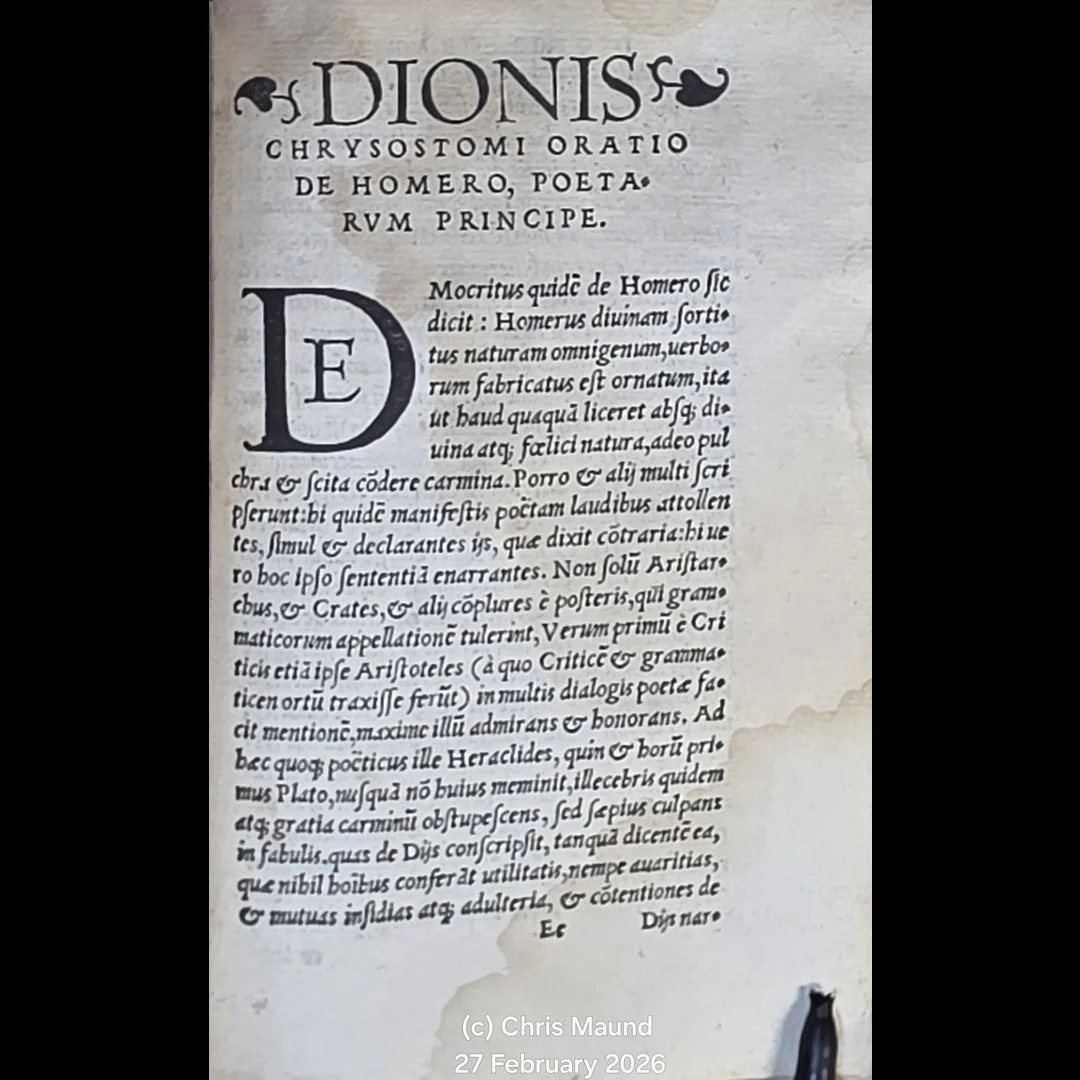 DIONIS
CHRYSOSTOMI ORATIO
DE HOMERO, POETA-
RVM PRINCIPE.
DEMocritus quidē de Homero ſic
dicit : Homerus diuinam ſorti-
tus naturam omnigenum,uerbo-
rum fabricatus eſt ornatum,ita
ut haud quaquā liceret abſq; di-
uina atq; fœlici natura,adeo pul
chra & ſcita cōdere carmina. Porro & alij multi ſcri
pſerunt:hi quidē manifeſtis poëtam laudibus attollen
tes, ſimul & declarantes ijs, quæ dixit cōtraria:hi ue
ro hoc ipſo ſententiā enarrantes. Non ſolū Ariſtar-
chus,& Crates,& alij cōplures è poſteris,qui gram-
maticorum appellationē tulerint,Verum primū è Cri
ticis etiā ipſe Ariſtoteles (à quo Criticē & gramma-
ticen ortū traxiſſe ferūt) in multis dialogis poetæ fa-
cit mentionē,maxime illū admirans & honorans. Ad
hæc quoq; poëticus ille Heraclides, quin & horū pri-
mus Plato,nuſquā nō huius meminit,illecebris quidem
atq; gratia carminū obſtupeſcens, ſed ſæpius culpans
in fabulis,quas de Dijs conſcripſit, tanquā dicentē ea,
quæ nihil hoībus conferāt utilitatis,nempe auaritias,
& mutuas inſidias atq; adulteria, & cōtentiones de
Ee Dijs nar-
(c) Chris Maund
27 February 2026